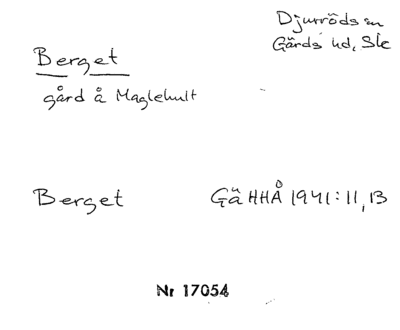 Djurröds sn
Gärds hd, Ske
Berget
gård å Maglehult
Berget GäHHÅ 1941:11,13
Nr 17054